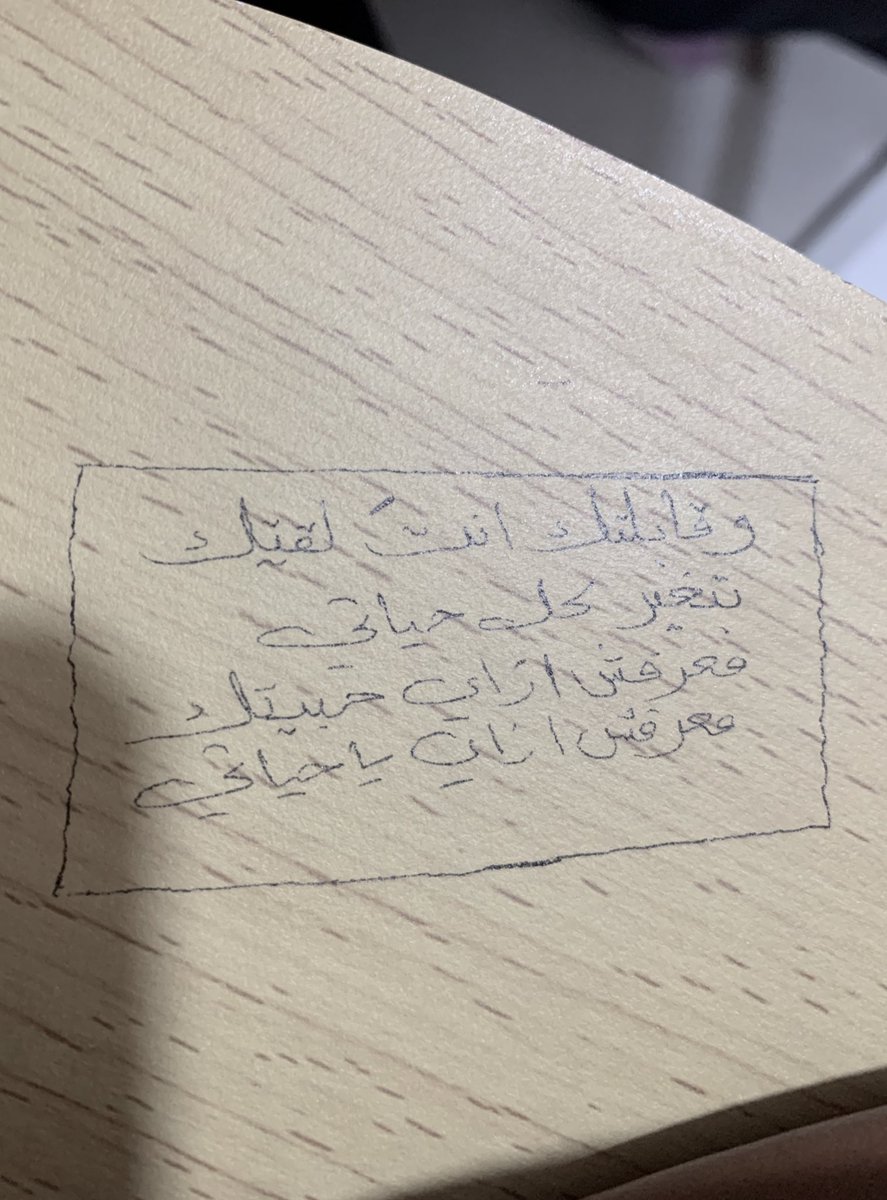 وقابلتك انتَ لقيتك
بتغير كل حياتي
معرفش ازاي حبيتك
معرفش ازاي ياحياتي